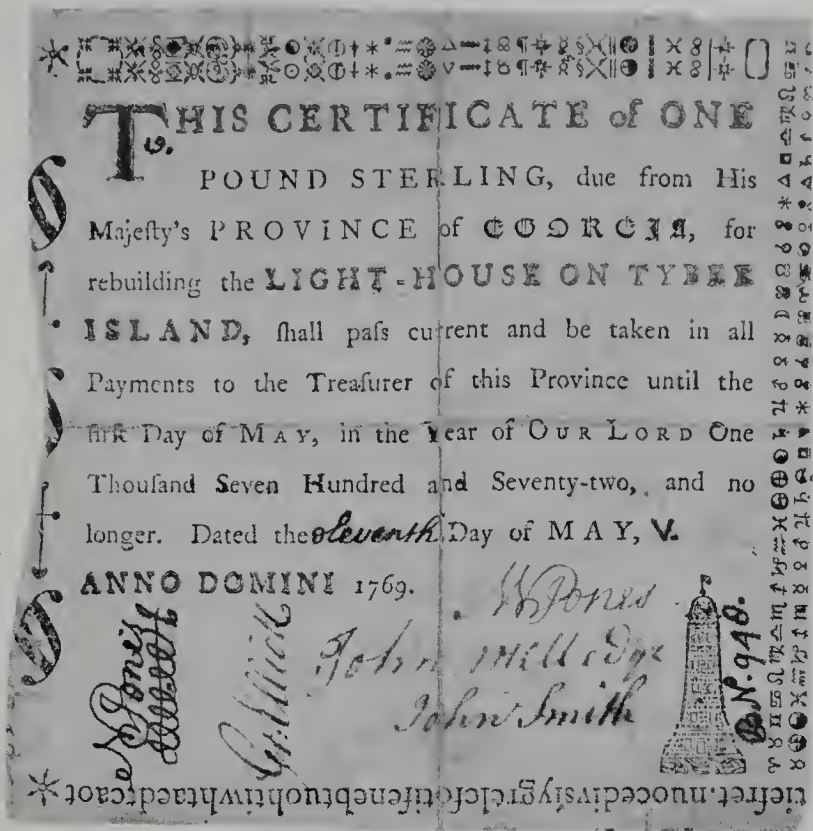 THIS CERTIFICATE of ONE
19.
POUND STERLING, due from His
Majeſty's PROVINCE of GEORGIA, for
rebuilding the LIGHT-HOUSE ON TYBEE
ISLAND, ſhall paſs current and be taken in all
Payments to the Treaſurer of this Province until the
firſt Day of MAY, in the Year of OUR LORD One
Thouſand Seven Hundred and Seventy-two, and no
longer. Dated the eleventh Day of MAY, V.
ANNO DOMINI 1769.
W Jones
N Jones
John Milledge
John Smith
B. No. 940.